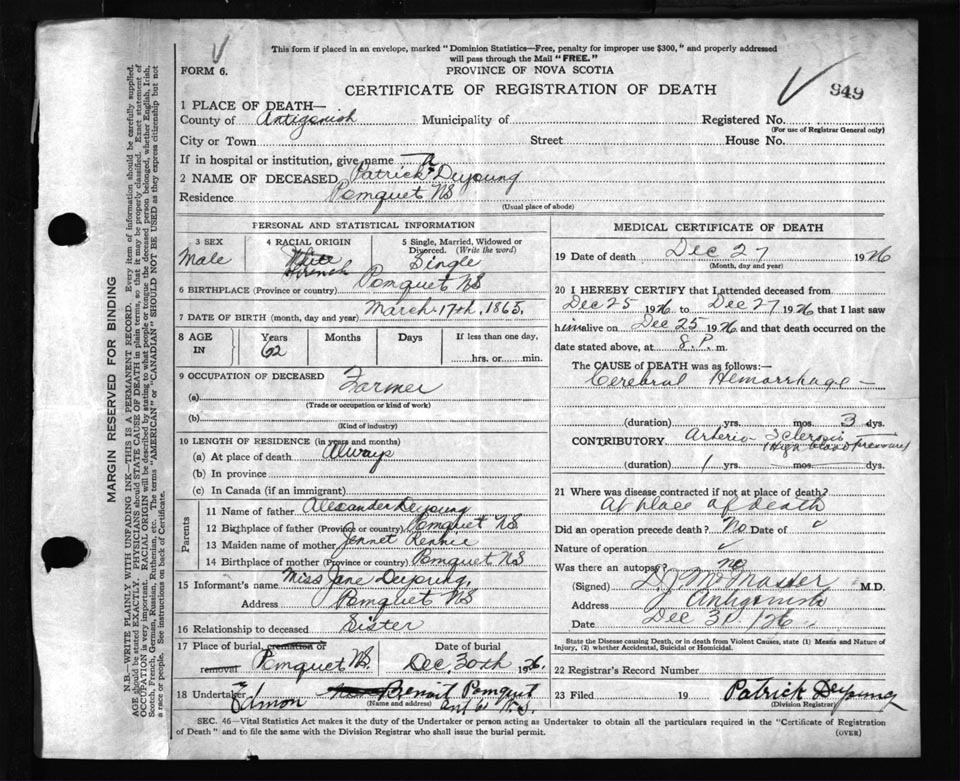 This form if placed in an envelope, marked "Dominion Statistics—Free, penalty for improper use $300," and properly addressed
will pass through the Mail "FREE."
FORM 6.
PROVINCE OF NOVA SCOTIA
CERTIFICATE OF REGISTRATION OF DEATH
949
1 PLACE OF DEATH—
County of Antigonish Municipality of Registered No.
(For use of Registrar General only)
City or Town Street House No.
If in hospital or institution, give name
2 NAME OF DECEASED Patrick Deyoung
Residence Pomquet NS
(Usual place of abode)
PERSONAL AND STATISTICAL INFORMATION
3 SEX 4 RACIAL ORIGIN 5 Single, Married, Widowed or Divorced. (Write the word)
Male White French Single
6 BIRTHPLACE (Province or country) Pomquet NS
7 DATE OF BIRTH (month, day and year) March 17th, 1865.
8 AGE IN Years Months Days If less than one day,
62 hrs. or min.
9 OCCUPATION OF DECEASED
(a) Farmer
(Trade or occupation or kind of work)
(b)
(Kind of industry)
10 LENGTH OF RESIDENCE (in years and months)
(a) At place of death Always
(b) In province
(c) In Canada (if an immigrant)
Parents
11 Name of father Alexander Deyoung
12 Birthplace of father (Province or country) Pomquet NS
13 Maiden name of mother Jennet Rennie
14 Birthplace of mother (Province or country) Pomquet NS
15 Informant's name Miss Jane Deyoung,
Address Pomquet NS
16 Relationship to deceased Sister
17 Place of burial, cremation or removal Pomquet NS. Date of burial Dec 30th 1926.
18 Undertaker Simon Benoit Pomquet
(Name and address) Ant Co N.S.
MEDICAL CERTIFICATE OF DEATH
19 Date of death Dec 27 1926
(Month, day and year)
20 I HEREBY CERTIFY that I attended deceased from
Dec 25 1926 to Dec 27 1926 that I last saw
him alive on Dec 25 1926 and that death occurred on
date stated above, at 8. P. m.
The CAUSE of DEATH was as follows:—
Cerebral Hemorrhage —
(duration) yrs. mos. 3 dys.
CONTRIBUTORY Arterio Sclerosis
(High blood pressure)
(duration) 1 yrs. mos. dys.
21 Where was disease contracted if not at place of death?
At place of death
Did an operation precede death? No Date of
Nature of operation
Was there an autopsy? no
(Signed) M.D.
Address Antigonish
Date Dec 31/26
State the Disease causing Death, or in death from Violent Causes, state (1) Means and Nature of
Injury, (2) whether Accidental, Suicidal or Homicidal.
22 Registrar's Record Number
23 Filed 19 Patrick DeYoung
(Division Registrar)
SEC. 46—Vital Statistics Act makes it the duty of the Undertaker or person acting as Undertaker to obtain all the particulars required in the "Certificate of Registration
of Death" and to file the same with the Division Registrar who shall issue the burial permit.
(OVER)
MARGIN RESERVED FOR BINDING
N.B.—WRITE PLAINLY WITH UNFADING INK—THIS IS A PERMANENT RECORD. Every item of information should be carefully supplied.
AGE should be stated EXACTLY. PHYSICIANS should STATE CAUSE OF DEATH in plain terms, so that it may be properly classified. Exact statement of
OCCUPATION is very important. RACIAL ORIGIN will be described by stating to what people or tongue the deceased person belonged, whether English, Irish,
Scotch, French, German, Russian, Ruthenian, etc. The terms "AMERICAN" or "CANADIAN" SHOULD NOT BE USED as they express citizenship but not
a race or people. See instructions on back of Certificate.